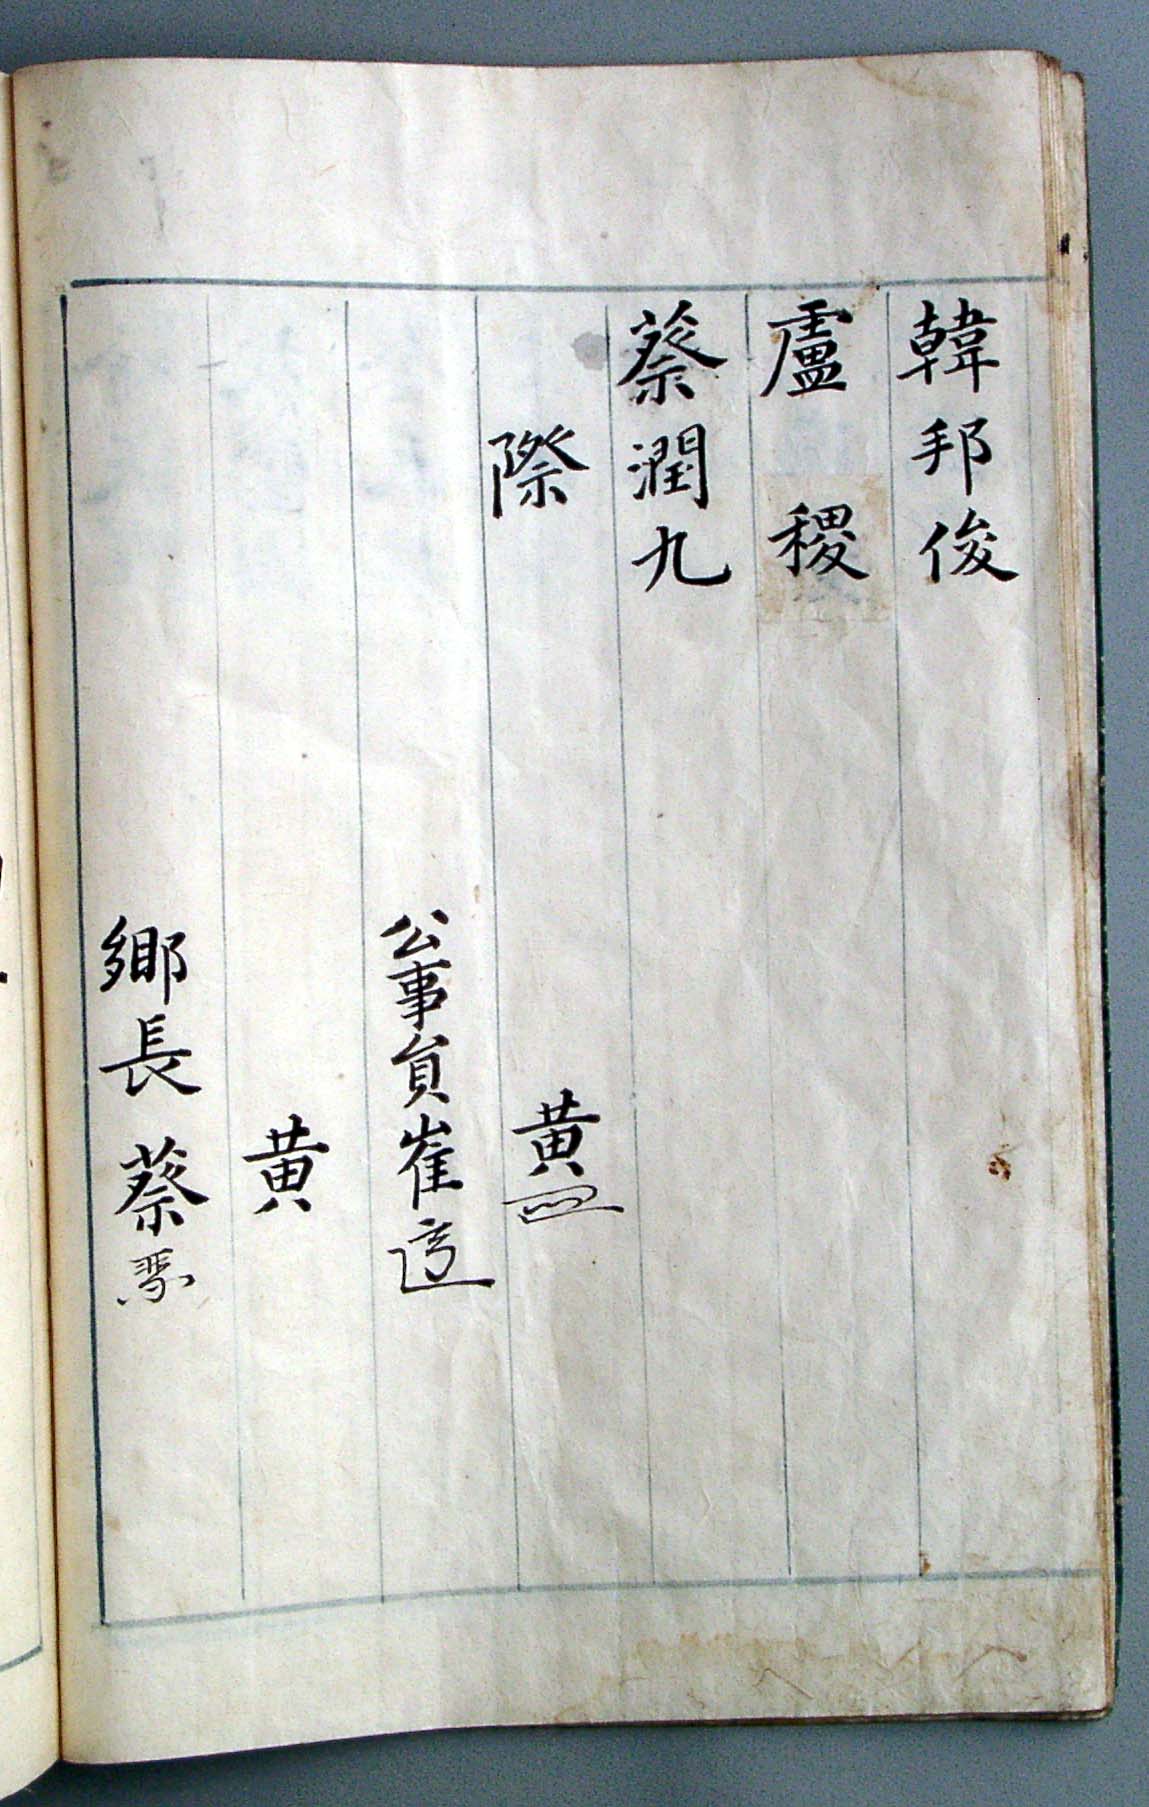 韓邦俊
盧稷
蔡潤九
際
黄
公事員崔
黄
鄉長蔡